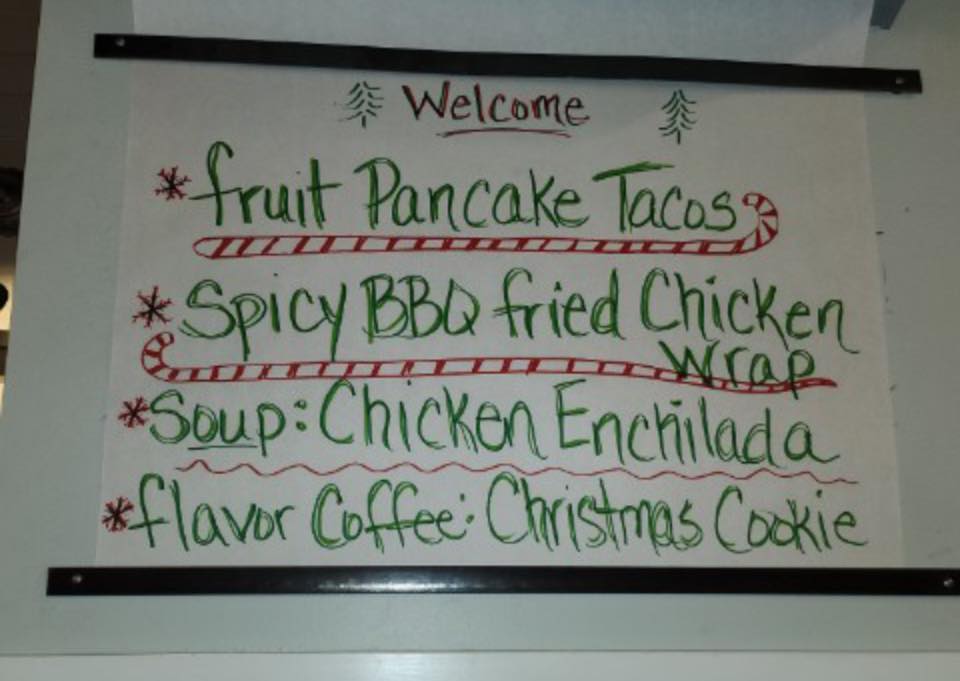 Welcome
* fruit Pancake Tacos
* Spicy BBQ fried Chicken
Wrap
* Soup: Chicken Enchilada
* flavor Coffee: Christmas Cookie